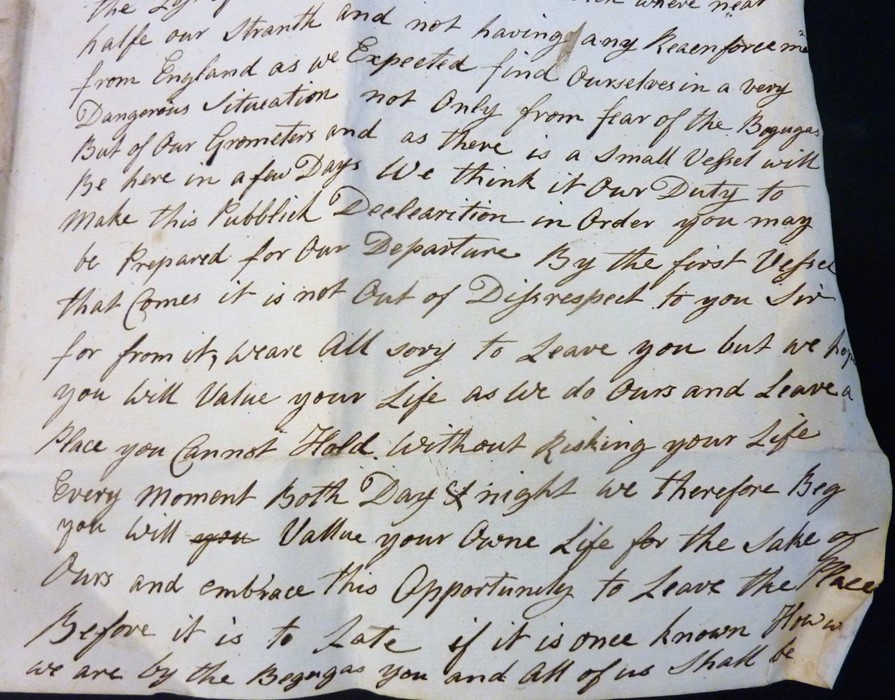 halfe our Stranth and not having any Reaenforceme
from England as we Expected find Ourselves in a very
Dangerous Situeation not Only from fear of the Begugas
But of Our Grometers and as there is a Small Vessel will
Be here in a few Days We think it Our Duty to
Make this Pubblick Declearition in Order you may
be Prepared for Our Departure By the first Vessel
that Comes it is not Out of Dissrespect to you Sir
for from it, weare All sory to Leave you but we hope
you will Value your Life as We do Ours and Leave a
Place you Cannot Hold Without Risking your Life
Every Moment Both Day & night we therefore Beg
you will you Vallue your Owne Life for the Sake of
Ours and embrace this Opportunity to Leave the Place
Before it is to Late if it is once known How w
we are by the Begugas you and All of us Shall be